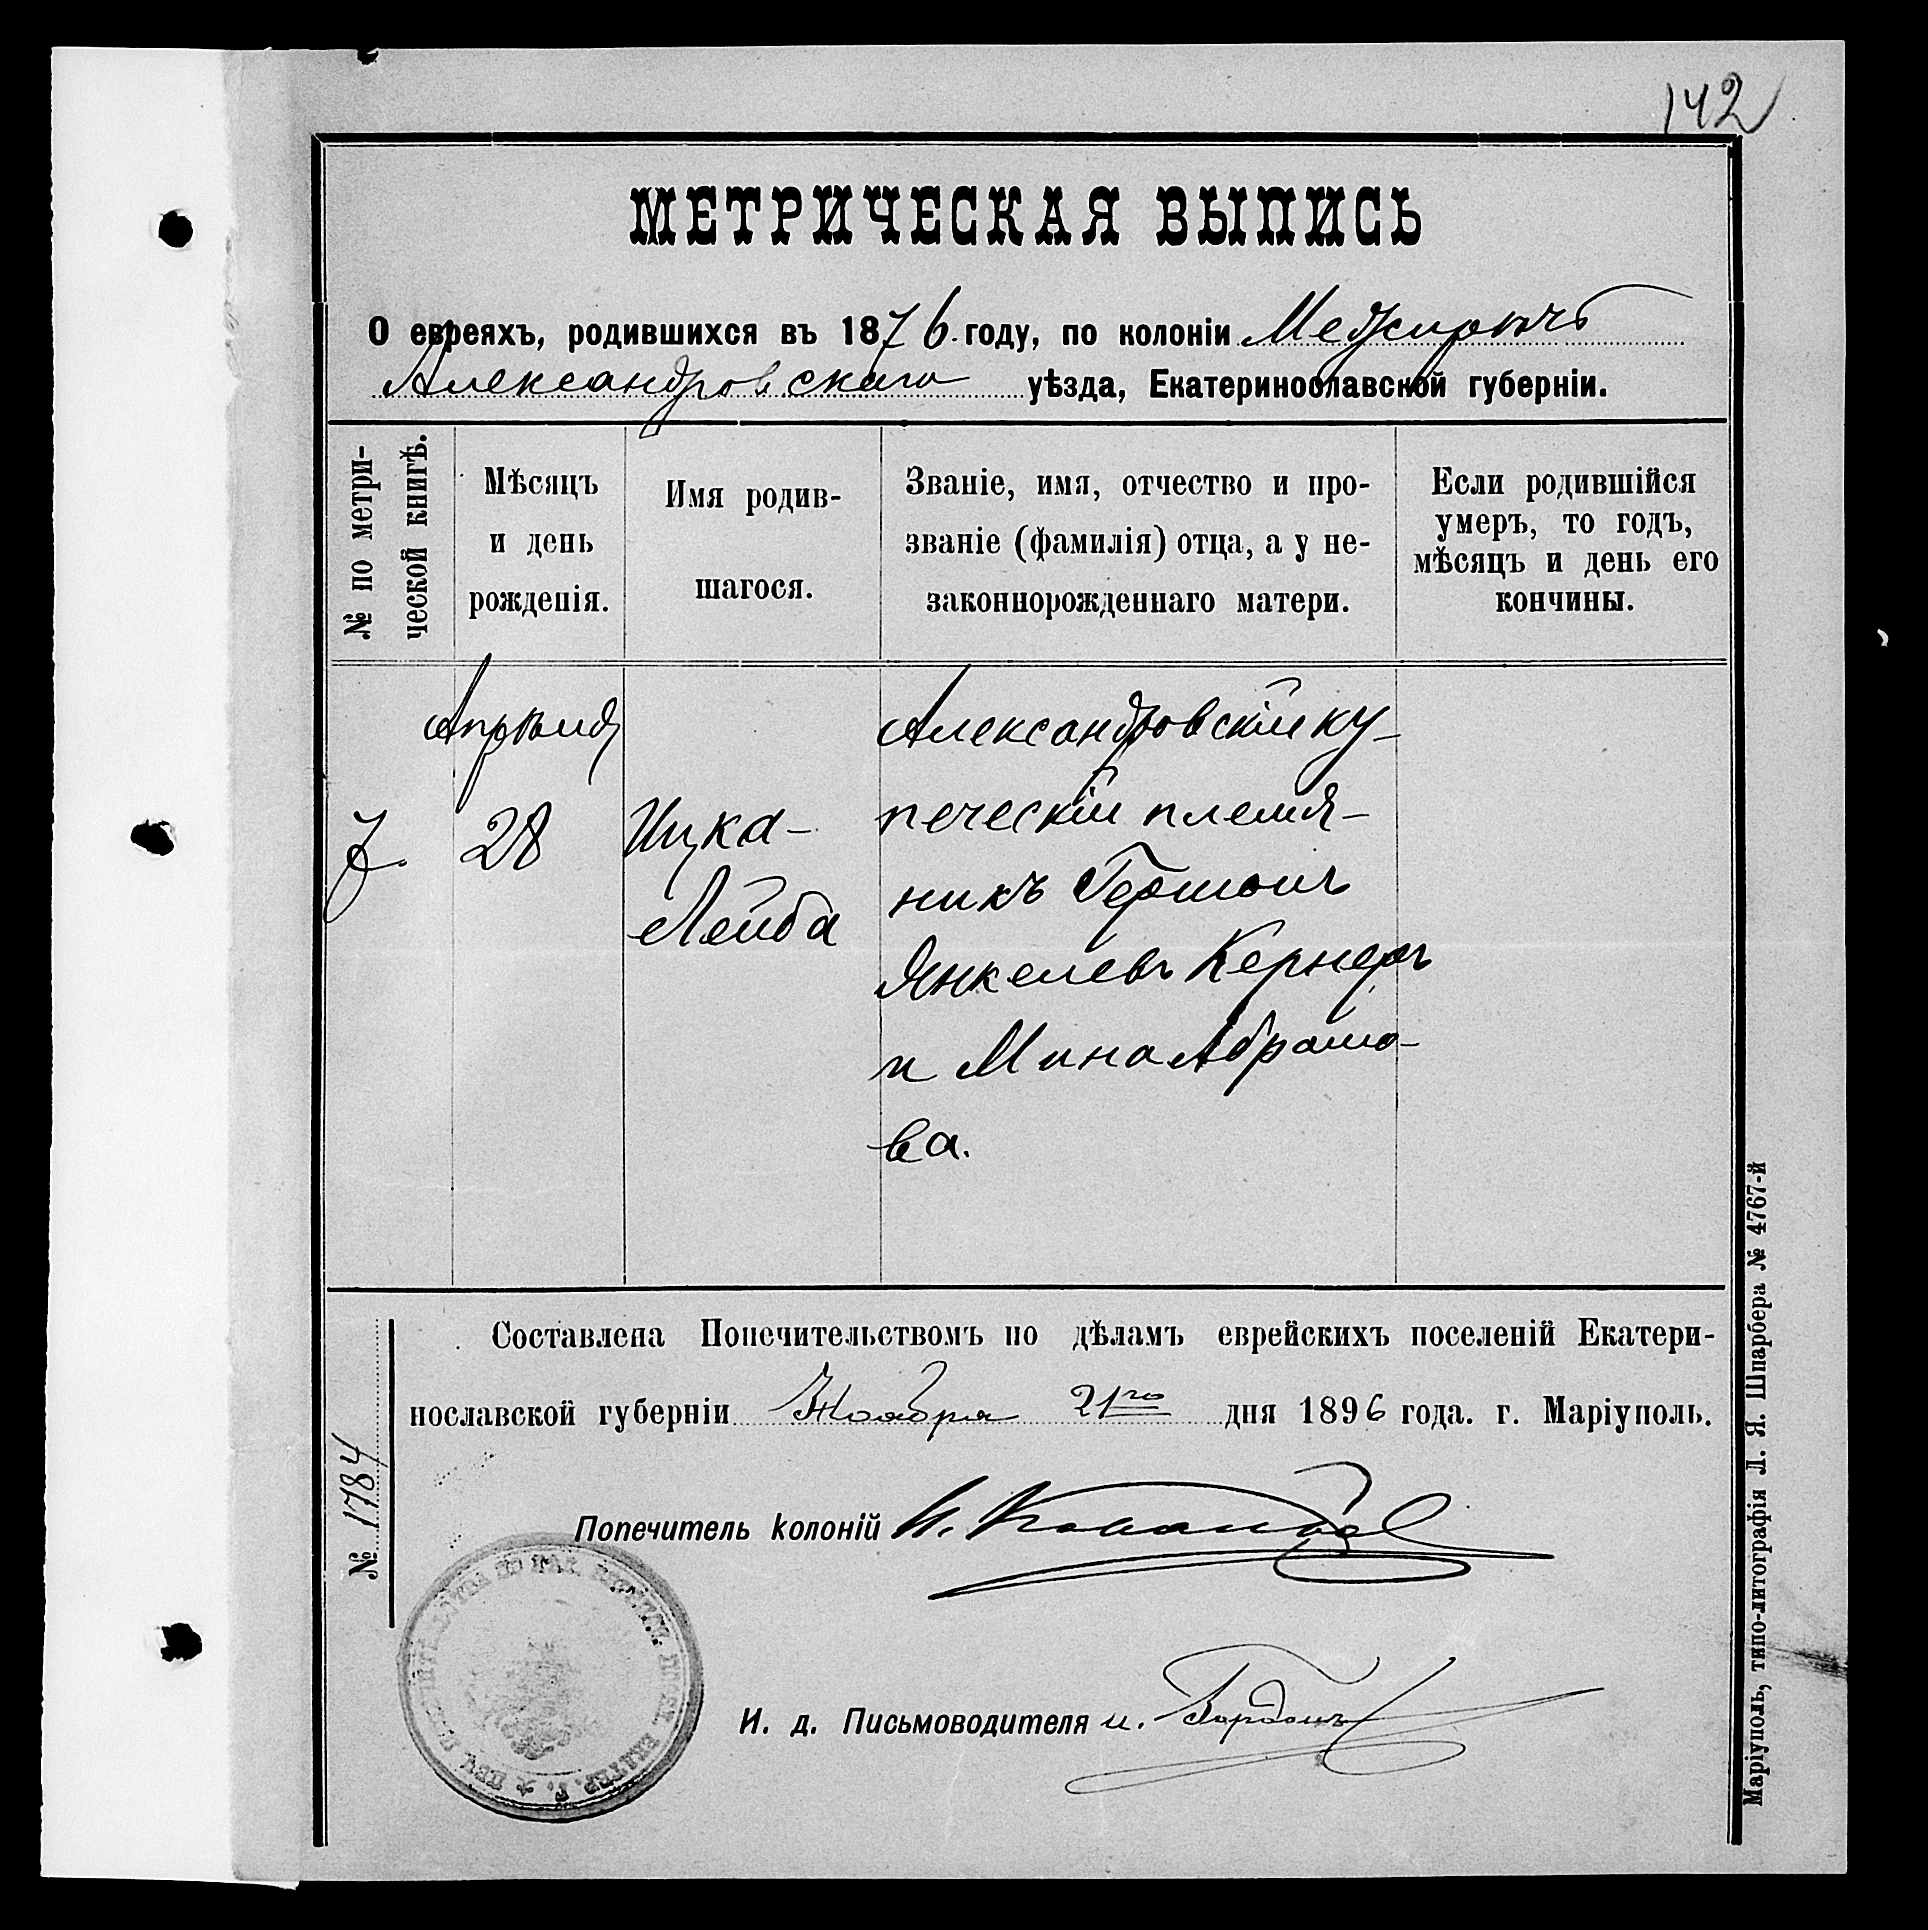 142
МЕТРИЧЕСКАЯ ВЫПИСЬ
О евреяхъ, родившихся въ 1876 году, по колоніи Межиричъ
Александровскаго уѣзда, Екатеринославской губерніи.
№ по метри-
ческой книгѣ.
Мѣсяцъ
и день
рожденія.
Имя родив-
шагося.
Званіе, имя, отчество и про-
званіе (фамилія) отца, а у не-
законнорожденнаго матери.
Если родившійся
умеръ, то годъ,
мѣсяцъ и день его
кончины.
7.
Апрѣля
28
Ицка-
Лейба
Александровскій ку-
печескій племя-
никъ Гершонъ
Янкелевъ Кернеръ
и Мина Абрамо-
ва.
Составлена Попечительствомъ по дѣламъ еврейскихъ поселеній Екатери-
нославской губерніи Ноября 21го дня 1896 года. г. Маріуполь.
№ 1784
Попечитель колоній
И. д. Письмоводителя И. Гордонъ
Маріуполь, типо-литографія Л. Я. Шпарбера № 4767-й